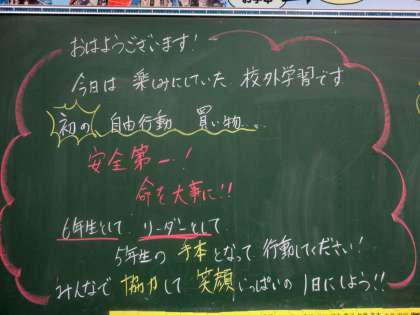 おはようございます!
今日は 楽しみにしていた 校外学習です
初の 自由行動 買い物...
安全第一!
命を大事に!!
6年生として リーダーとして
5年生の 手本となって 行動してください!
みんなで 協力して 笑顔いっぱいの 1日にしよう!!